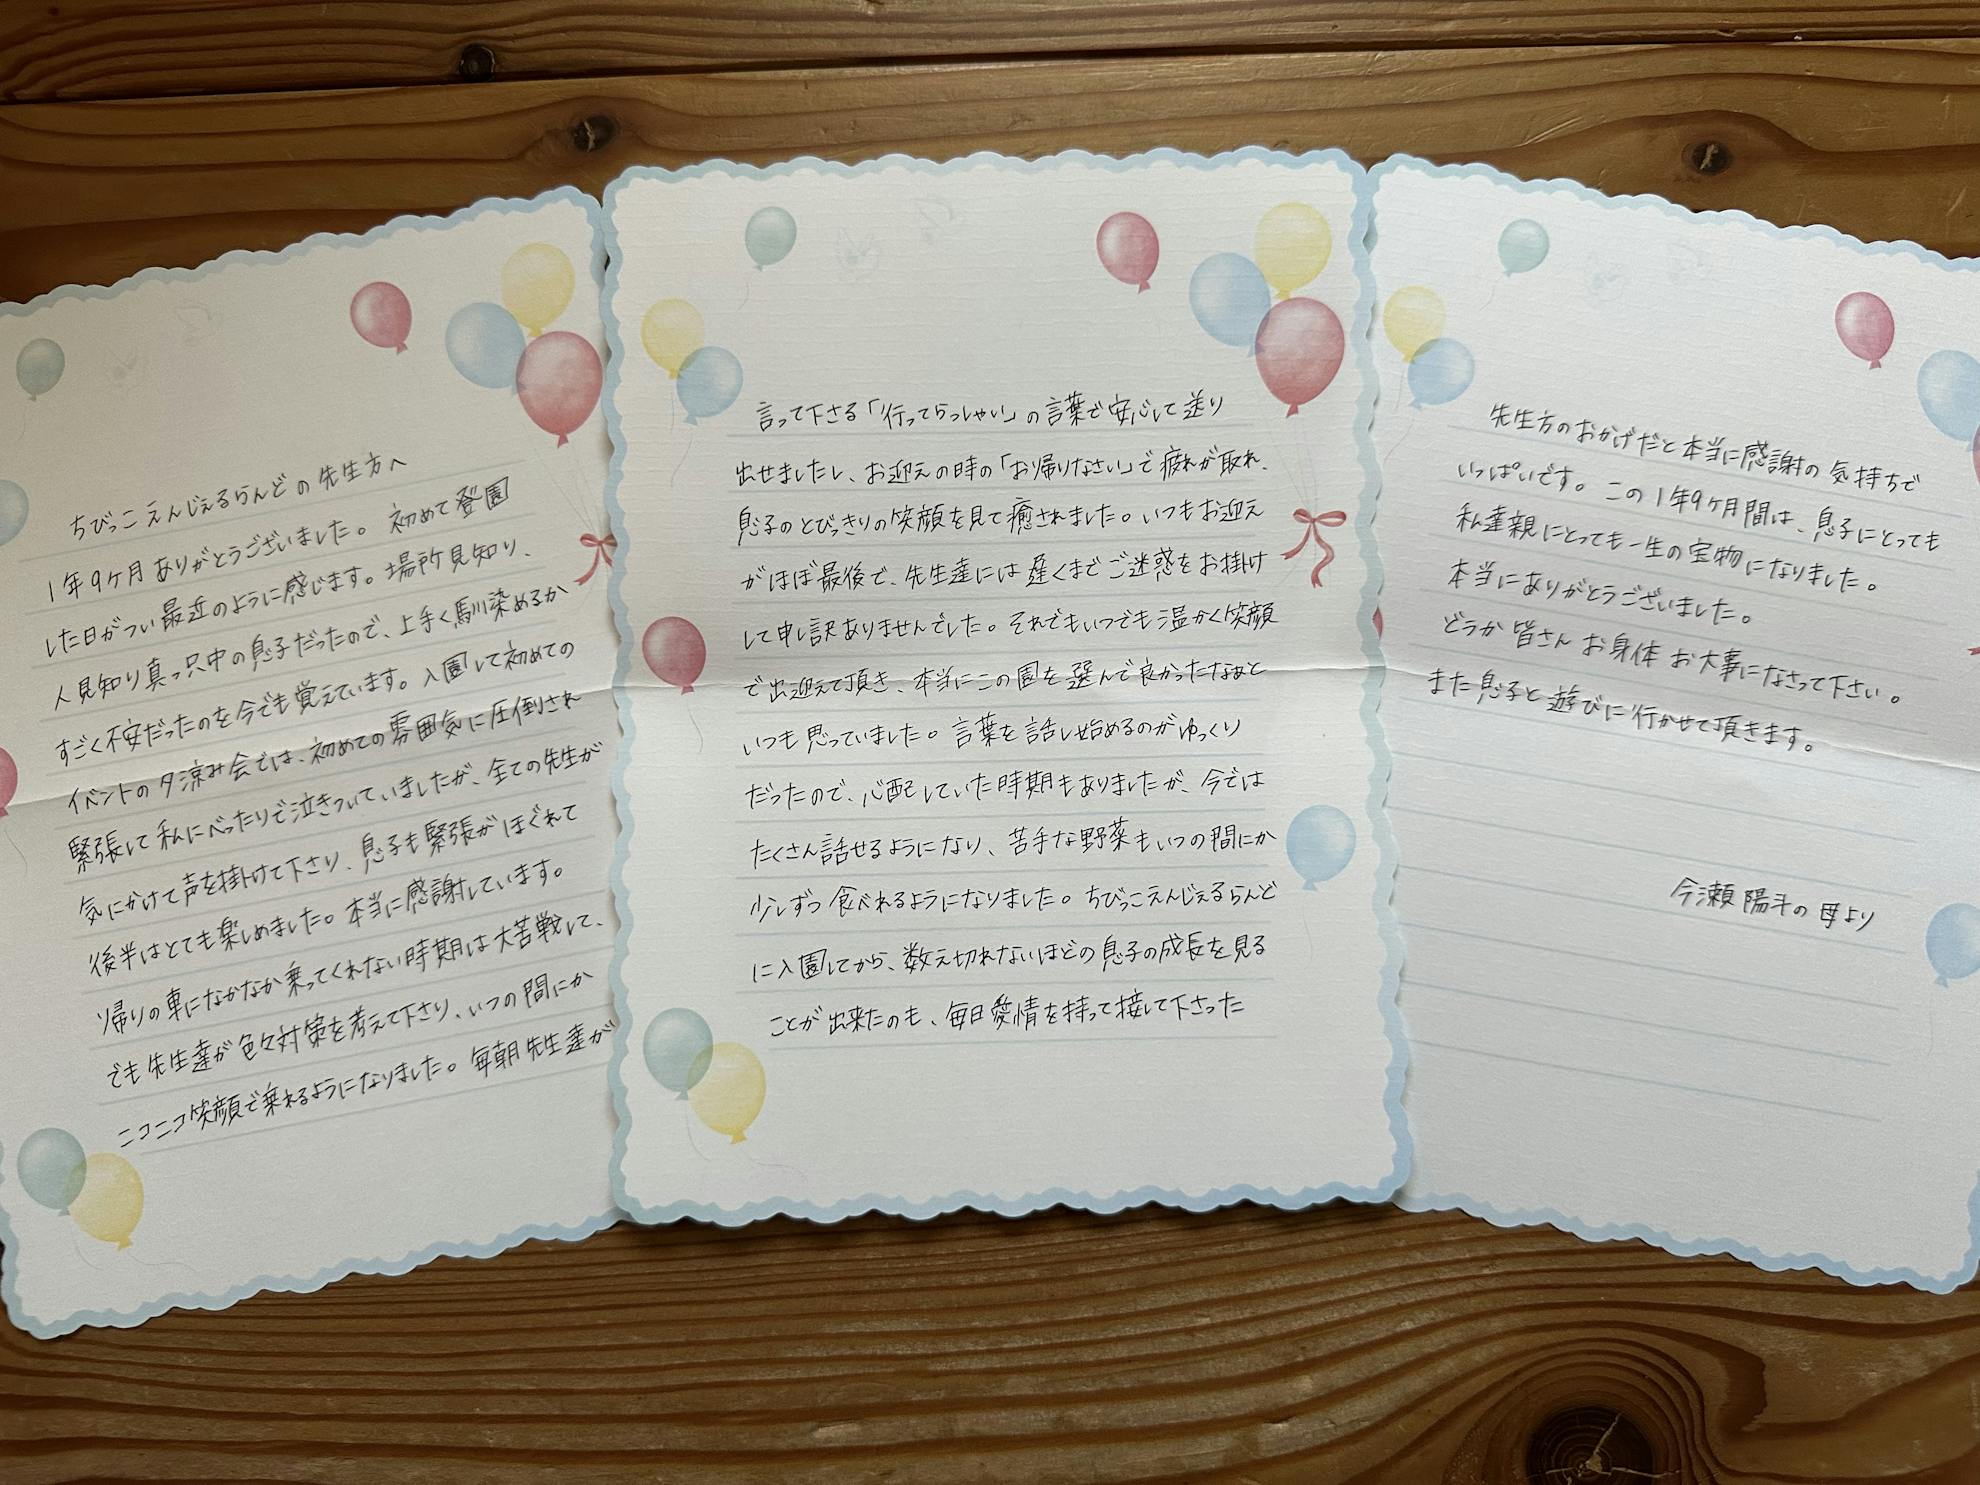 ちびっこえんじぇるらんどの先生方へ
1年9ケ月ありがとうございました。初めて登園
した日がつい最近のように感じます。場所見知り、
人見知り真っ只中の息子だったので、上手く馴染めるか
すごく不安だったのを今でも覚えています。入園して初めての
イベントの夕涼み会では、初めての雰囲気に圧倒され
緊張して私にべったりで泣きついていましたが、全ての先生が
気にかけて声を掛けて下さり、息子も緊張がほぐれて
後半はとても楽しめました。本当に感謝しています。
帰りの車になかなか乗ってくれない時期は大苦戦して、
でも先生達が色々対策を考えて下さり、いつの間にか
ニコニコ笑顔で乗れるようになりました。毎朝先生達が
言って下さる「行ってらっしゃい」の言葉で安心して送り
出せましたし、お迎えの時の「お帰りなさい」で疲れが取れ、
息子のとびっきりの笑顔を見て癒されました。いつもお迎え
がほぼ最後で、先生達には遅くまでご迷惑をお掛け
して申し訳ありませんでした。それでもいつでも温かく笑顔
で出迎えて頂き、本当にこの園を選んで良かったなぁと
いつも思っていました。言葉を話し始めるのがゆっくり
だったので、心配していた時期もありましたが、今では
たくさん話せるようになり、苦手な野菜もいつの間にか
少しずつ食べれるようになりました。ちびっこえんじぇるらんど
に入園してから、数え切れないほどの息子の成長を見る
ことが出来たのも、毎日愛情を持って接して下さった
先生方のおかげだと本当に感謝の気持ちで
いっぱいです。この1年9ケ月間は、息子にとっても
私達親にとっても一生の宝物になりました。
本当にありがとうございました。
どうか皆さんお身体お大事になさって下さい。
また息子と遊びに行かせて頂きます。
今瀬陽斗の母より